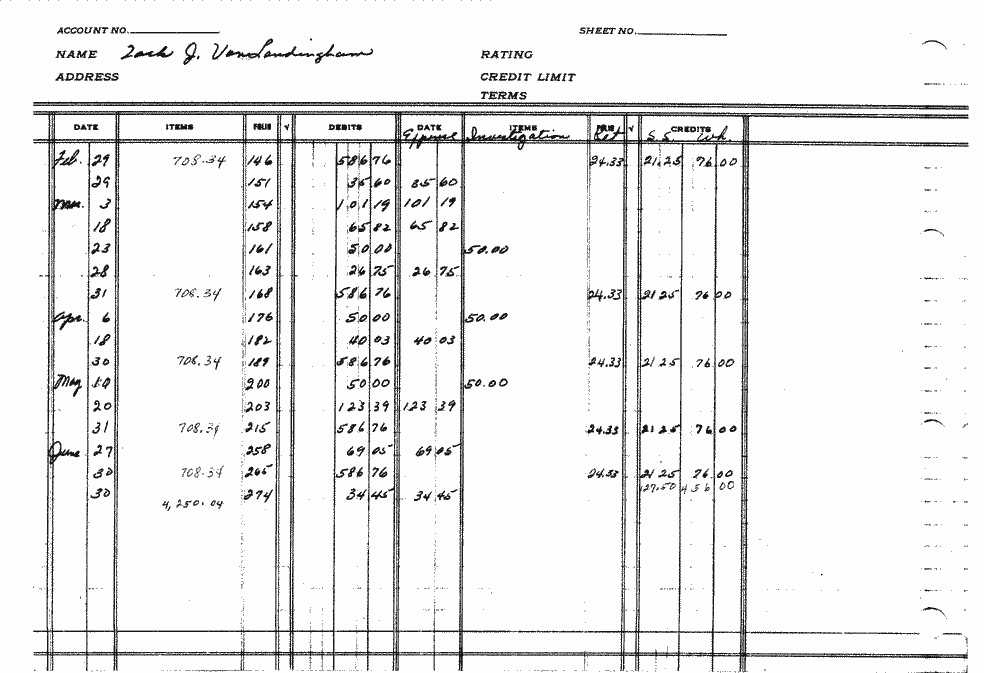 ACCOUNT NO. SHEET NO.
NAME Zack J. VanLandingham RATING
ADDRESS CREDIT LIMIT
TERMS
DATE ITEMS FOLIO √ DEBITS DATE ITEMS FOLIO √ CREDITS
Expense Investigation Ret S.S. Wh.
Feb. 29 708.34 146 586 76 24.33 21.25 76 00
29 151 35 60 35 60
Mar. 3 154 101 19 101 19
18 158 65 82 65 82
23 161 50 00 50.00
28 163 26 75 26 75
31 708.34 168 586 76 24.33 21 25 76 00
Apr. 6 176 50 00 50.00
18 182 40 03 40 03
30 708.34 189 586 76 24.33 21 25 76 00
May 10 200 50 00 50.00
20 203 123 39 123 39
31 708.34 215 586 76 24.33 21 25 76 00
June 27 258 69 05 69 05
30 708.34 265 586 76 24.33 21 25 76 00
30 274 34 45 34 45 127.50 456 00
4,250.04